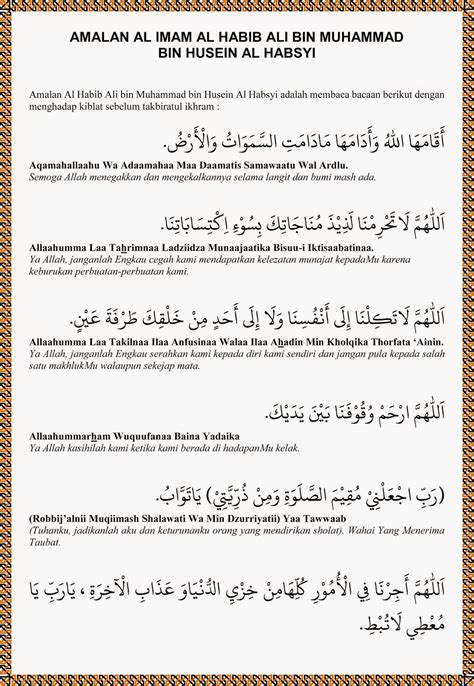 AMALAN AL IMAM AL HABIB ALI BIN MUHAMMAD
BIN HUSEIN AL HABSYI
Amalan Al Habib Ali bin Muhammad bin Husein Al Habsyi adalah membaca bacaan berikut dengan
menghadap kiblat sebelum takbiratul ikhram :
أَقَامَهَا اللهُ وَأَدَامَهَا مَادَامَتِ السَّمَوَاتُ وَالْأَرْضُ.
Aqamahallaahu Wa Adaamahaa Maa Daamatis Samawaatu Wal Ardlu.
Semoga Allah menegakkan dan mengekalkannya selama langit dan bumi mash ada.
اَللّٰهُمَّ لَا تَحْرِمْنَا لَذِيْذَ مُنَاجَاتِكَ بِسُوْءِ اِكْتِسَابَاتِنَا.
Allaahumma Laa Tahrimnaa Ladziidza Munaajaatika Bisuu-i Iktisaabatinaa.
Ya Allah, janganlah Engkau cegah kami mendapatkan kelezatan munajat kepadaMu karena
keburukan perbuatan-perbuatan kami.
اَللّٰهُمَّ لَاتَكِلْنَا إِلَى أَنْفُسِنَا وَلَا إِلَى أَحَدٍ مِنْ خَلْقِكَ طَرْفَةَ عَيْنٍ.
Allaahumma Laa Takilnaa Ilaa Anfusinaa Walaa Ilaa Ahadin Min Kholqika Thorfata ‘Ainin.
Ya Allah, janganlah Engkau serahkan kami kepada diri kami sendiri dan jangan pula kepada salah
satu makhlukMu walaupun sekejap mata.
اَللّٰهُمَّ ارْحَمْ وُقُوْفَنَا بَيْنَ يَدَيْكَ.
Allaahummarham Wuquufanaa Baina Yadaika
Ya Allah kasihilah kami ketika kami berada di hadapanMu kelak.
(رَبِّ اجْعَلْنِيْ مُقِيْمَ الصَّلَوةِ وَمِنْ ذُرِّيَّتِيْ) يَاتَوَّابُ.
(Robbij’alnii Muqiimash Shalawati Wa Min Dzurriyatii) Yaa Tawwaab
(Tuhanku, jadikanlah aku dan keturunanku orang yang mendirikan sholat). Wahai Yang Menerima
Taubat.
اَللّٰهُمَّ أَجِرْنَا فِي الْأُمُوْرِ كُلِّهَامِنْ خِزْيِ الدُّنْيَاوَ عَذَابِ الْآخِرَةِ ، يَارَبِّ يَا
مُعْطِي لَاتُبْطِ.